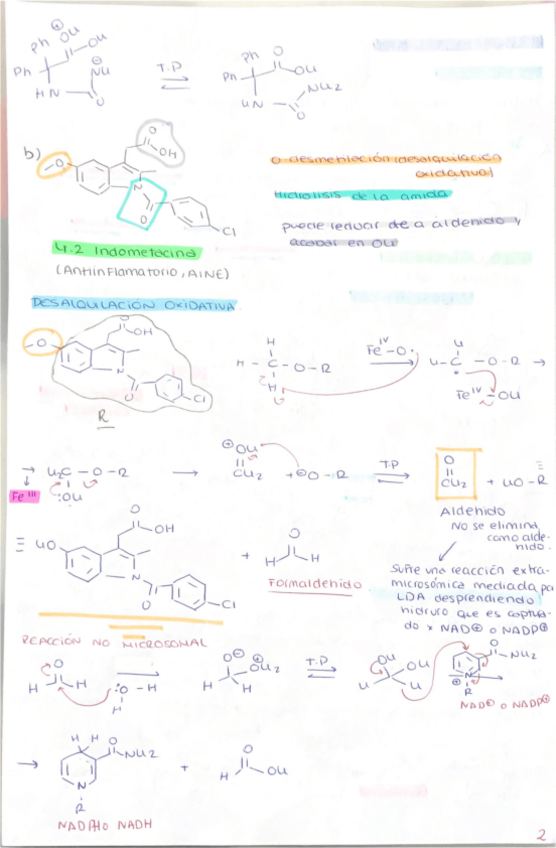 Ph
Ph
OH
OH
NH
HN
O
T.P
Ph
Ph
O
OH
NH2
HN
O
b)
O
OH
O
N
O
Cl
O desmetilación (desalquilación
oxidativa)
Hidrólisis de la amida
puede reducirse a aldehído y
acabar en OH
4.2 Indometacina
(Antiinflamatorio, AINE)
DESALQUILACIÓN OXIDATIVA
O
OH
O
N
O
Cl
R
H
H - C - O - R
H
Fe IV - O·
H
H - C - O - R →
Fe IV - OH
→ H2C - O - R
Fe III :OH
→
⊕OH
CH2
+ ⊖O - R
T.P
O
CH2
+ HO - R
≡
≡ HO
O
OH
N
O
Cl
+
O
H H
Formaldehído
Aldehído
No se elimina
como alde-
hído.
Sufre una reacción extra-
microsómica mediada por
LDA desprendiendo
hidruro que es captura-
do x NAD⊕ o NADP⊕
REACCIÓN NO MICROSOMAL
O
H H
:O - H
H
O⊖ ⊕OH2
H H
T.P
OH OH
H H
O
NH2
N
R
NAD⊕ o NADP⊕
→
H H O
NH2
N
R
+
O
H OH
NADPH o NADH
2